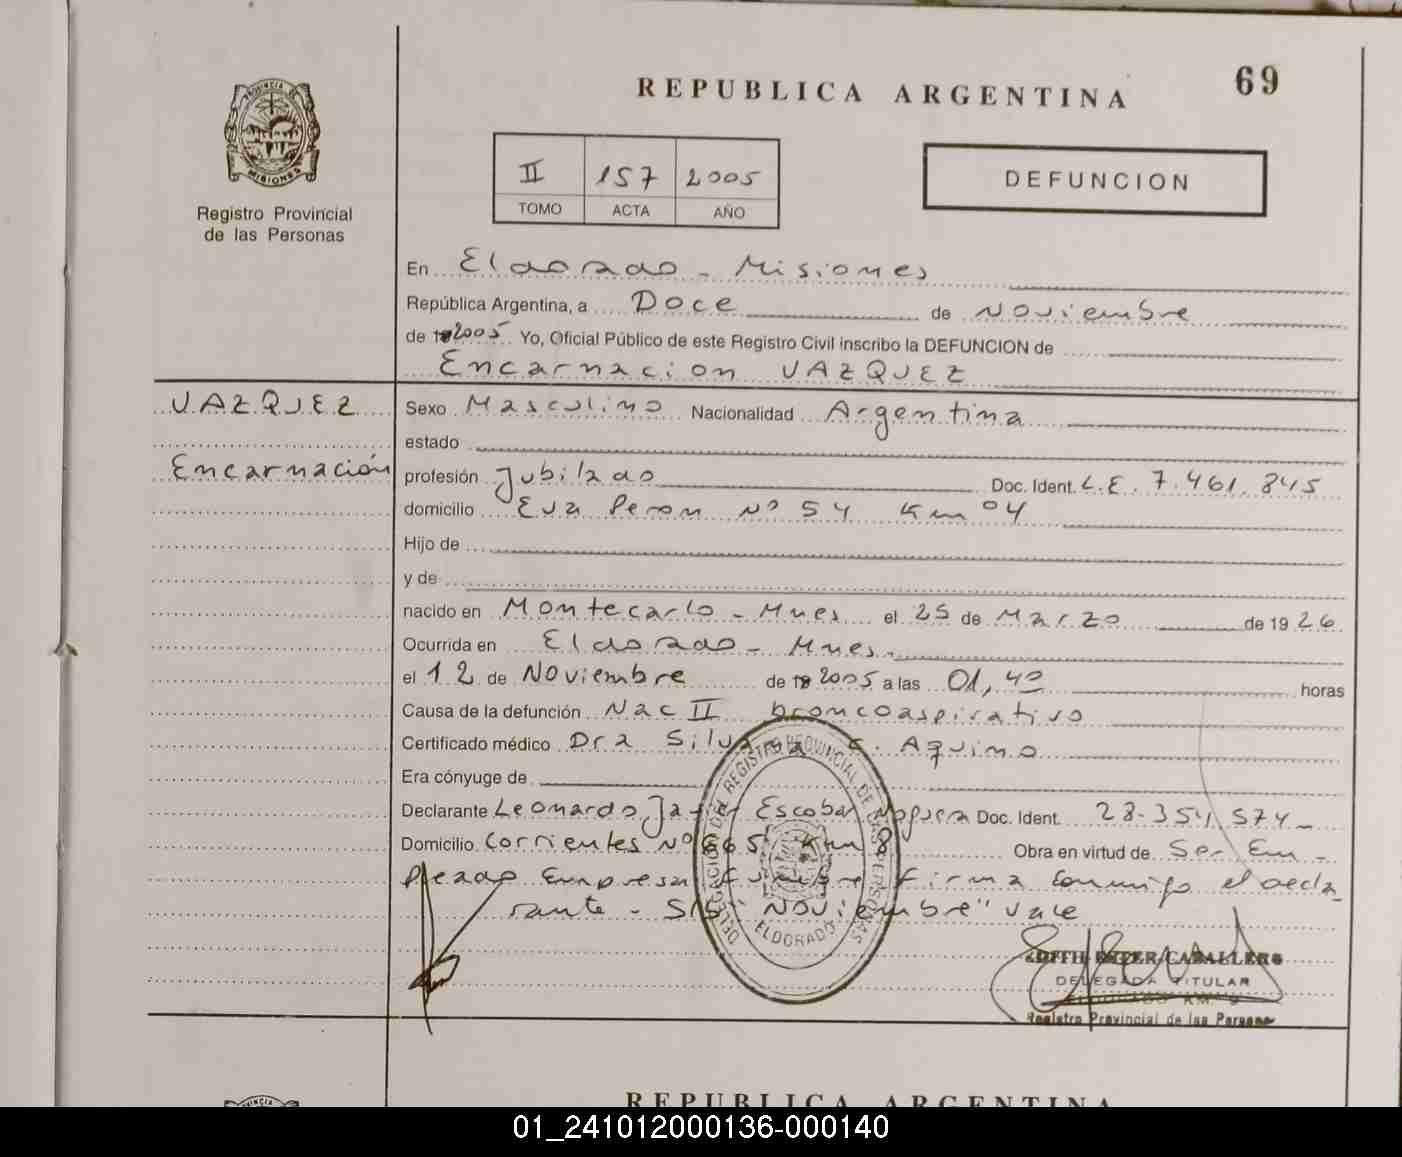 REPUBLICA ARGENTINA
69
PROVINCIA DE
MISIONES
Registro Provincial
de las Personas
II 157 2005
TOMO ACTA AÑO
DEFUNCION
En Eldorado - Misiones
República Argentina, a Doce de Noviembre
de 2005 Yo, Oficial Público de este Registro Civil inscribo la DEFUNCION de
Encarnacion VAZQUEZ
VAZQUEZ
Encarnación
Sexo Masculino Nacionalidad Argentina
estado
profesión Jubilado Doc. Ident. L.E. 7.461.845
domicilio Eva Peron Nº 54 Km 04
Hijo de
y de
nacido en Montecarlo - Mnes el 25 de Marzo de 1926
Ocurrida en Eldorado - Mnes.
el 12 de Noviembre de 2005 a las 01,40 horas
Causa de la defunción Nac II broncoaspirativo
Certificado médico Dra Silvana E. Aquino
Era cónyuge de
Declarante Leonardo Javier Escobar Doc. Ident. 28.354.574
Domicilio Corrientes Nº 665 Km 8 Obra en virtud de Ser Em-
pleado Empresa Funebre firma conmigo el decla
rante - S/S "Noviembre" vale
DELEGACION DEL REGISTRO PROVINCIAL DE LAS PERSONAS
ELDORADO
EDITH ESTER CABALLERO
DELEGADA TITULAR
ELDORADO KM 9
Registro Provincial de las Personas
PROVINCIA
REPUBLICA ARGENTINA
01_241012000136-000140